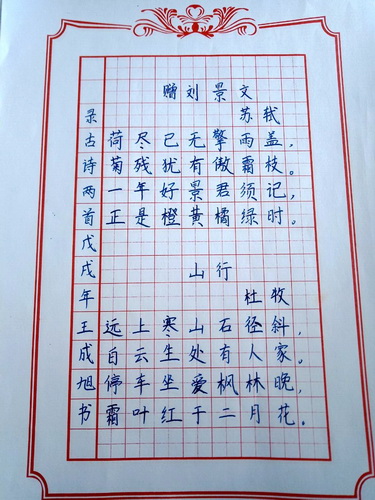 赠刘景文
苏轼
荷尽已无擎雨盖，
菊残犹有傲霜枝。
一年好景君须记，
正是橙黄橘绿时。
山行
杜牧
远上寒山石径斜，
白云生处有人家。
停车坐爱枫林晚，
霜叶红于二月花。
录古诗两首戊戌年王成旭书